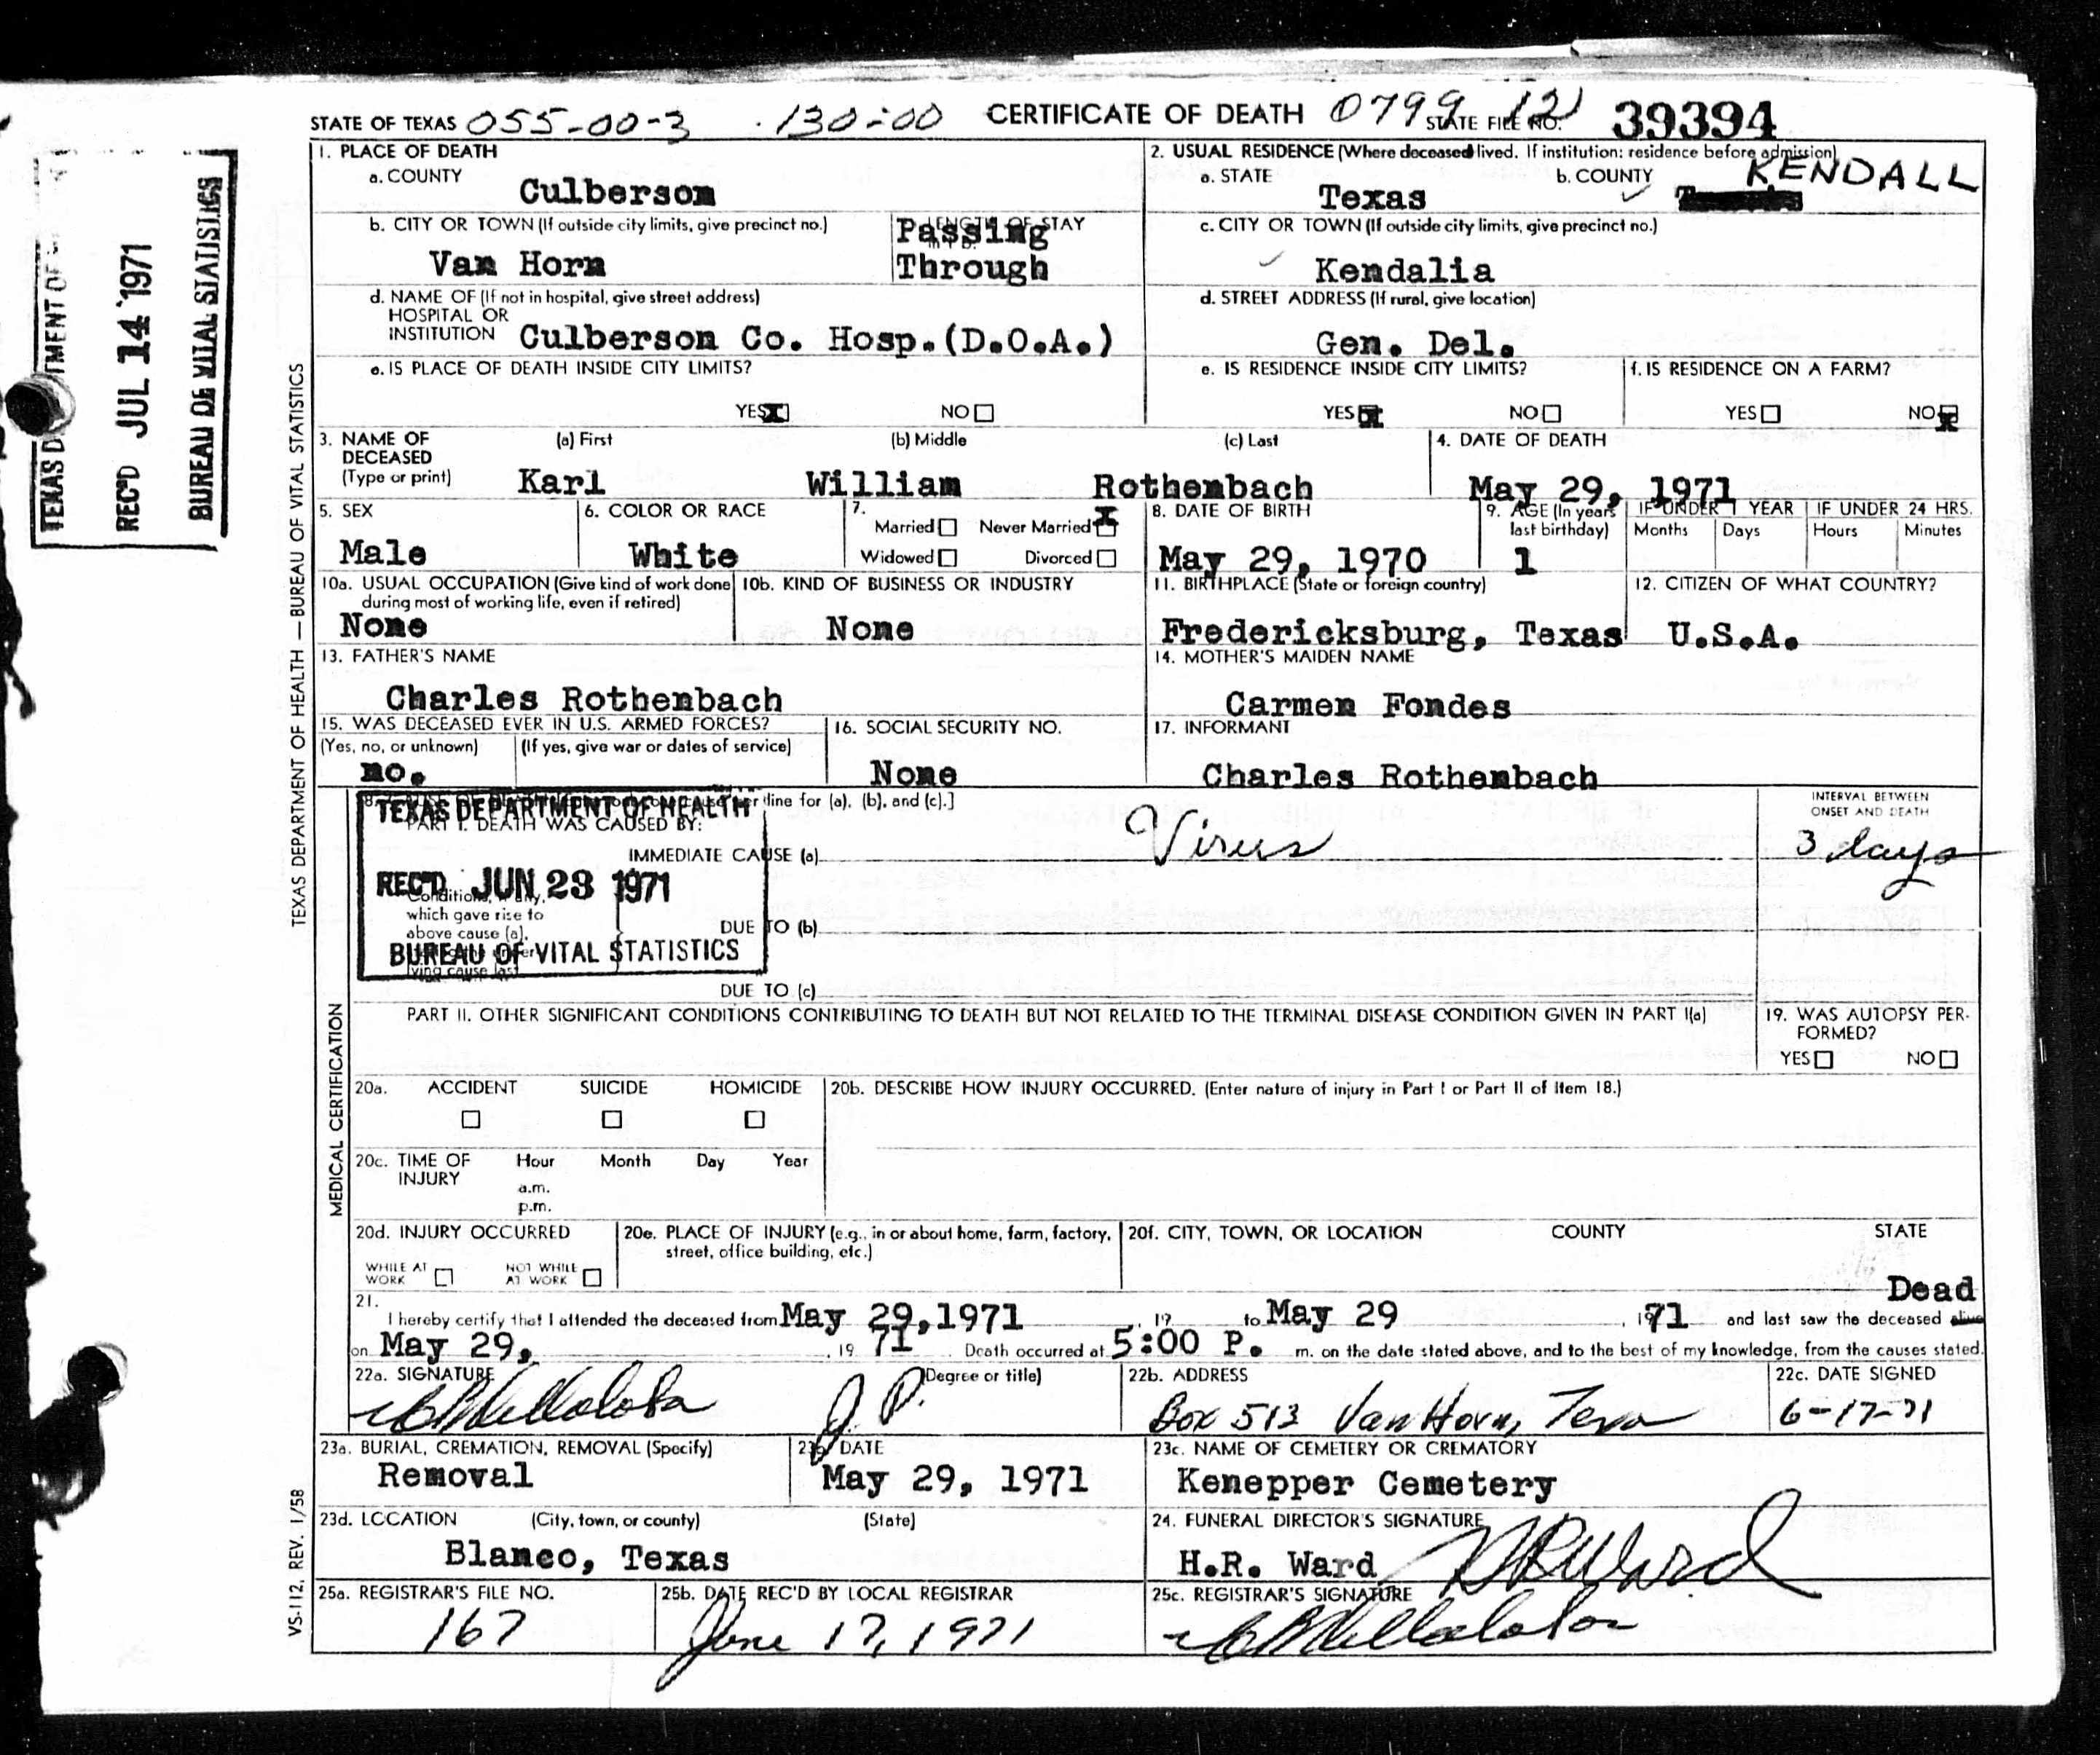 STATE OF TEXAS 055-00-3 130-00 CERTIFICATE OF DEATH 0799 121 STATE FILE NO. 39394
1. PLACE OF DEATH
a. COUNTY
Culberson
2. USUAL RESIDENCE (Where deceased lived. If institution: residence before admission)
a. STATE
Texas
b. COUNTY
KENDALL
b. CITY OR TOWN (If outside city limits, give precinct no.)
Van Horn
LENGTH OF STAY
Passing
Through
c. CITY OR TOWN (If outside city limits, give precinct no.)
Kendalia
d. NAME OF (If not in hospital, give street address)
HOSPITAL OR
INSTITUTION Culberson Co. Hosp.(D.O.A.)
d. STREET ADDRESS (If rural, give location)
Gen. Del.
e. IS PLACE OF DEATH INSIDE CITY LIMITS?
YES NO
e. IS RESIDENCE INSIDE CITY LIMITS?
YES NO
f. IS RESIDENCE ON A FARM?
YES NO
3. NAME OF DECEASED
(Type or print)
(a) First (b) Middle (c) Last
Karl William Rothenbach
4. DATE OF DEATH
May 29, 1971
5. SEX
Male
6. COLOR OR RACE
White
7.
Married Never Married X
Widowed Divorced
8. DATE OF BIRTH
May 29, 1970
9. AGE (In years
last birthday)
1
IF UNDER 1 YEAR
Months Days
IF UNDER 24 HRS.
Hours Minutes
10a. USUAL OCCUPATION (Give kind of work done
during most of working life, even if retired)
None
10b. KIND OF BUSINESS OR INDUSTRY
None
11. BIRTHPLACE (State or foreign country)
Fredericksburg, Texas
12. CITIZEN OF WHAT COUNTRY?
U.S.A.
13. FATHER'S NAME
Charles Rothenbach
14. MOTHER'S MAIDEN NAME
Carmen Fondes
15. WAS DECEASED EVER IN U.S. ARMED FORCES?
(Yes, no, or unknown) (If yes, give war or dates of service)
no.
16. SOCIAL SECURITY NO.
None
17. INFORMANT
Charles Rothenbach
line for (a), (b), and (c).]
PART I. DEATH WAS CAUSED BY:
IMMEDIATE CAUSE (a) Virus
INTERVAL BETWEEN
ONSET AND DEATH
3 days
TEXAS DEPARTMENT OF HEALTH
REC'D JUN 23 1971
BUREAU OF VITAL STATISTICS
Conditions, if any,
which gave rise to
above cause (a),
lying cause last
DUE TO (b)
DUE TO (c)
PART II. OTHER SIGNIFICANT CONDITIONS CONTRIBUTING TO DEATH BUT NOT RELATED TO THE TERMINAL DISEASE CONDITION GIVEN IN PART I(a)
19. WAS AUTOPSY PER-
FORMED?
YES NO
20a. ACCIDENT SUICIDE HOMICIDE
20b. DESCRIBE HOW INJURY OCCURRED. (Enter nature of injury in Part I or Part II of Item 18.)
20c. TIME OF
INJURY
Hour Month Day Year
a.m.
p.m.
20d. INJURY OCCURRED
WHILE AT
WORK
NOT WHILE
AT WORK
20e. PLACE OF INJURY (e.g., in or about home, farm, factory,
street, office building, etc.)
20f. CITY, TOWN, OR LOCATION COUNTY STATE
21. Dead
I hereby certify that I attended the deceased from May 29,1971, 19 to May 29, 1971 and last saw the deceased alive
on May 29, 19 71 Death occurred at 5:00 P. m. on the date stated above, and to the best of my knowledge, from the causes stated.
22a. SIGNATURE (Degree or title)
J. P.
22b. ADDRESS
Box 513 Van Horn, Texas
22c. DATE SIGNED
6-17-71
23a. BURIAL, CREMATION, REMOVAL (Specify)
Removal
23b. DATE
May 29, 1971
23c. NAME OF CEMETERY OR CREMATORY
Kenepper Cemetery
23d. LOCATION (City, town, or county) (State)
Blanco, Texas
24. FUNERAL DIRECTOR'S SIGNATURE
H.R. Ward HRWard
25a. REGISTRAR'S FILE NO.
167
25b. DATE REC'D BY LOCAL REGISTRAR
June 17, 1971
25c. REGISTRAR'S SIGNATURE
TEXAS DEPARTMENT OF HEALTH — BUREAU OF VITAL STATISTICS
MEDICAL CERTIFICATION
VS-112, REV. 1/58
REC'D JUL 14 1971
BUREAU OF VITAL STATISTICS